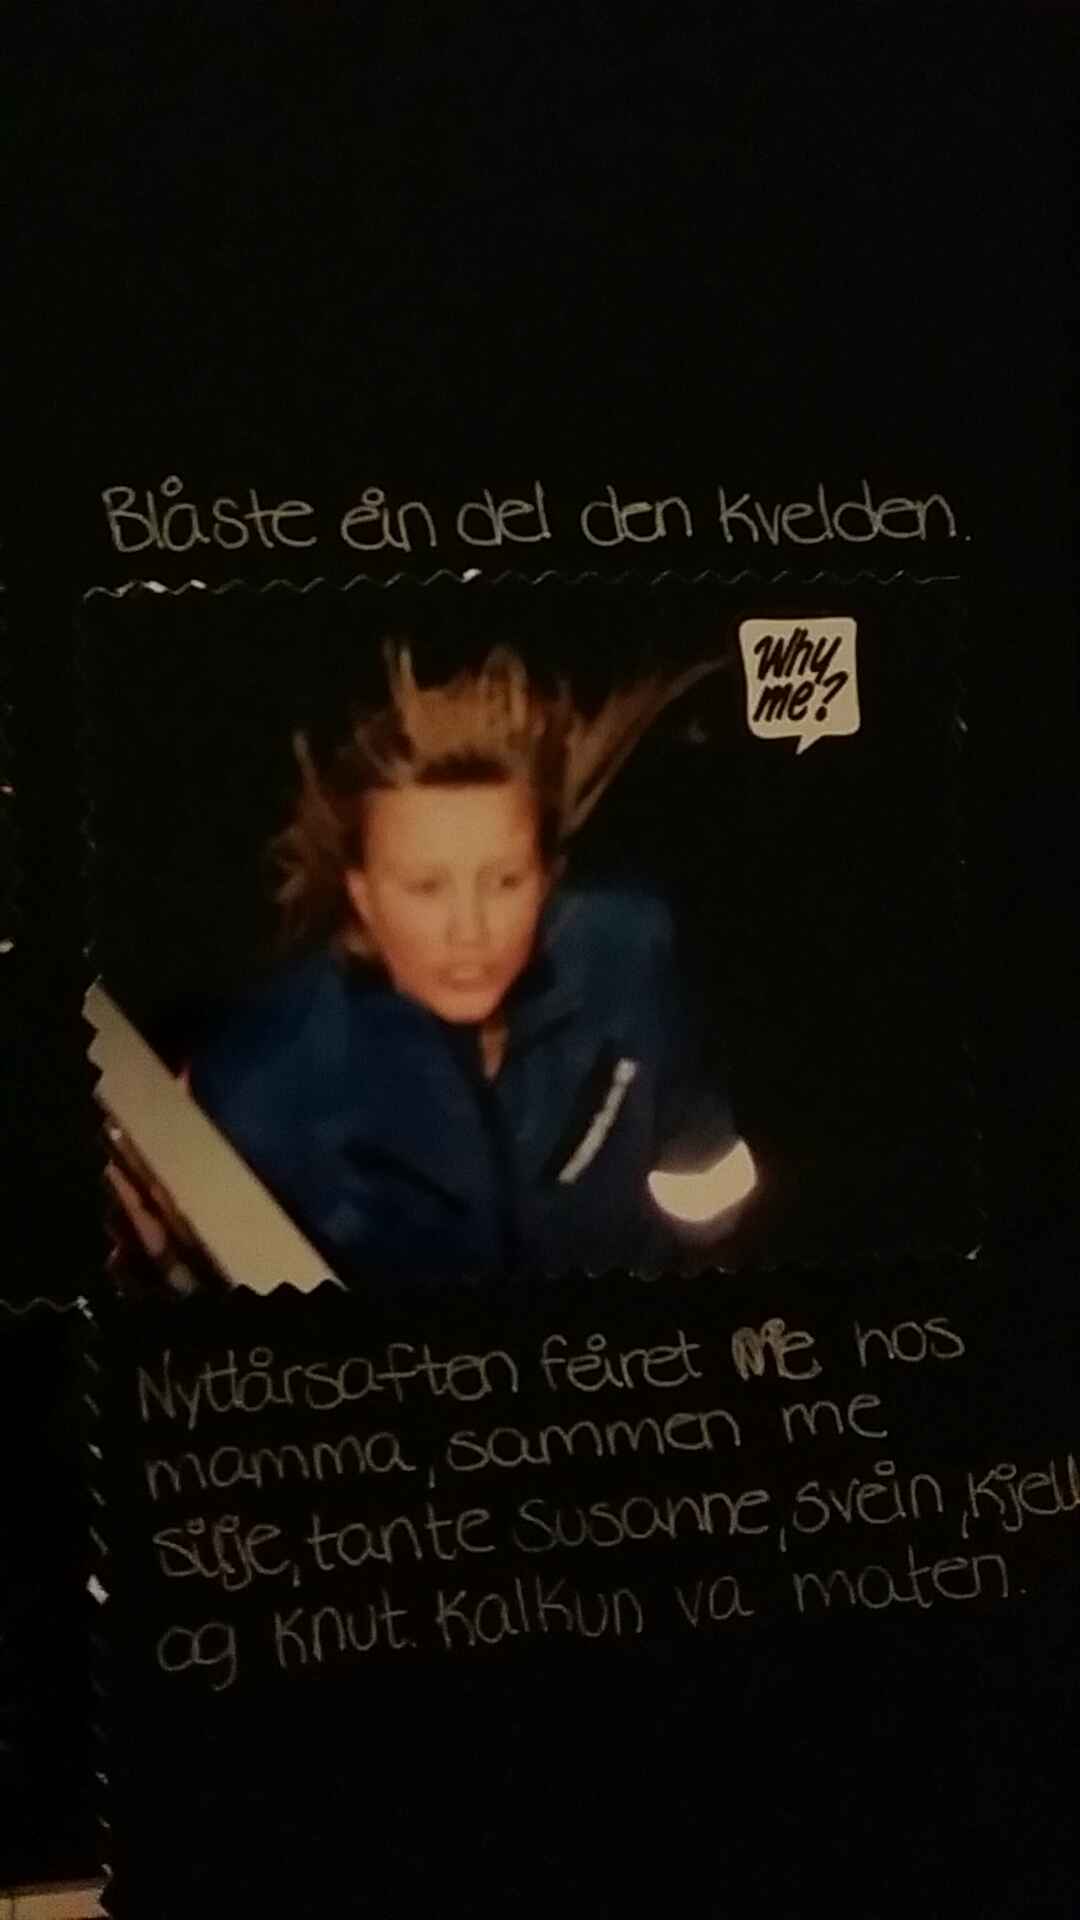 Blåste ein del den kvelden.
Why
me?
Nyttårsaften feiret me hos
mamma, sammen me
silje, tante Susanne, svein, kjell
og knut. Kalkun va maten.